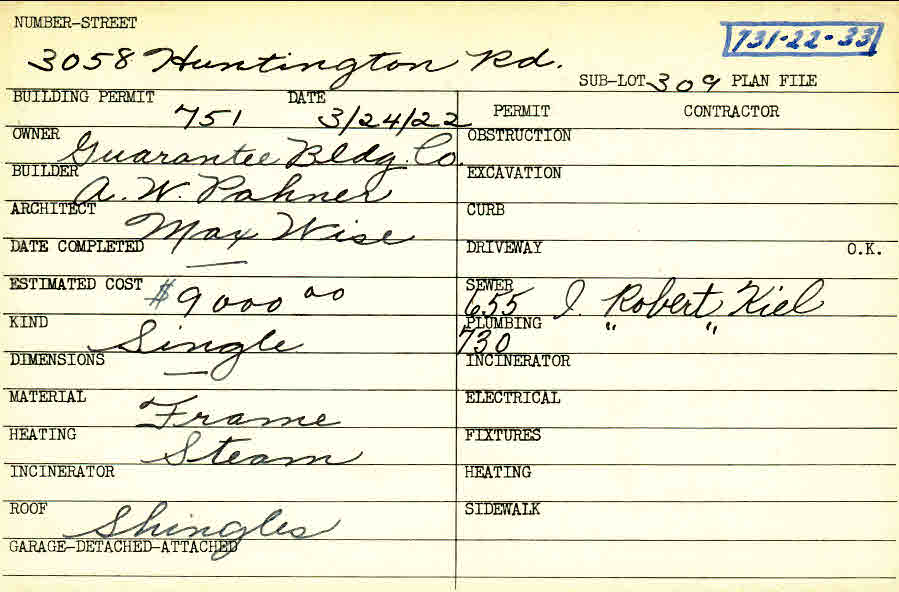 NUMBER-STREET
731-22-33
3058 Huntington Rd.
SUB-LOT 309 PLAN FILE
BUILDING PERMIT 751 DATE 3/24/22
PERMIT CONTRACTOR
OWNER Guarantee Bldg. Co.
OBSTRUCTION
BUILDER A. W. Pahner
EXCAVATION
ARCHITECT Max Wise
CURB
DATE COMPLETED —
DRIVEWAY O.K.
ESTIMATED COST $9000 00
SEWER 655 J. Robert Kiel
KIND Single
PLUMBING 730 " "
DIMENSIONS —
INCINERATOR
MATERIAL Frame
ELECTRICAL
HEATING Steam
FIXTURES
INCINERATOR
HEATING
ROOF Shingles
SIDEWALK
GARAGE-DETACHED-ATTACHED